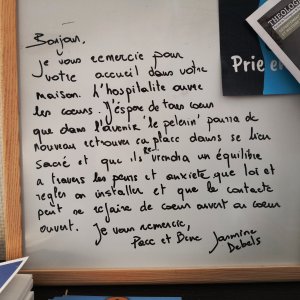 Bonjour,
je vous remercie pour
votre accueil dans votre
maison. L'hospitalité ouvre
les cœurs. J'éspère de tous cœur
que dans l'avenir 'le pelerin' pourra de
nouveau retrouver ca place dans se lieu
sacré et que ils viendra un équilibre
a travers les peurs et anxiété que loi et
regler on installer et que le contacte
peut se refaire de coeur ouvert au coeur
ouvert. Je vous remercie,
Pace et Bene Jasmine
Debels
Prie
THEOLOG